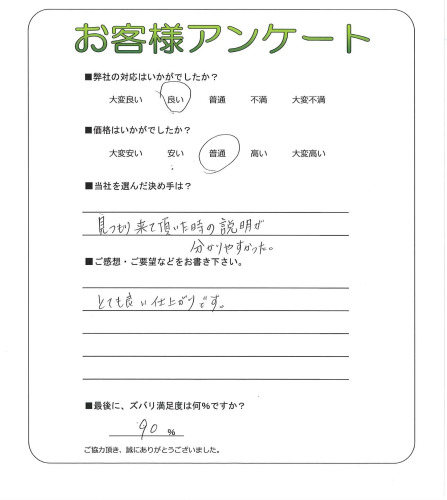 お客様アンケート
■弊社の対応はいかがでしたか？
大変良い 良い 普通 不満 大変不満
■価格はいかがでしたか？
大変安い 安い 普通 高い 大変高い
■当社を選んだ決め手は？
見つもり来て頂いた時の説明が
分かりやすかった。
■ご感想・ご要望などをお書き下さい。
とても良い仕上がりです。
■最後に、ズバリ満足度は何%ですか？
90 %
ご協力頂き、誠にありがとうございました。